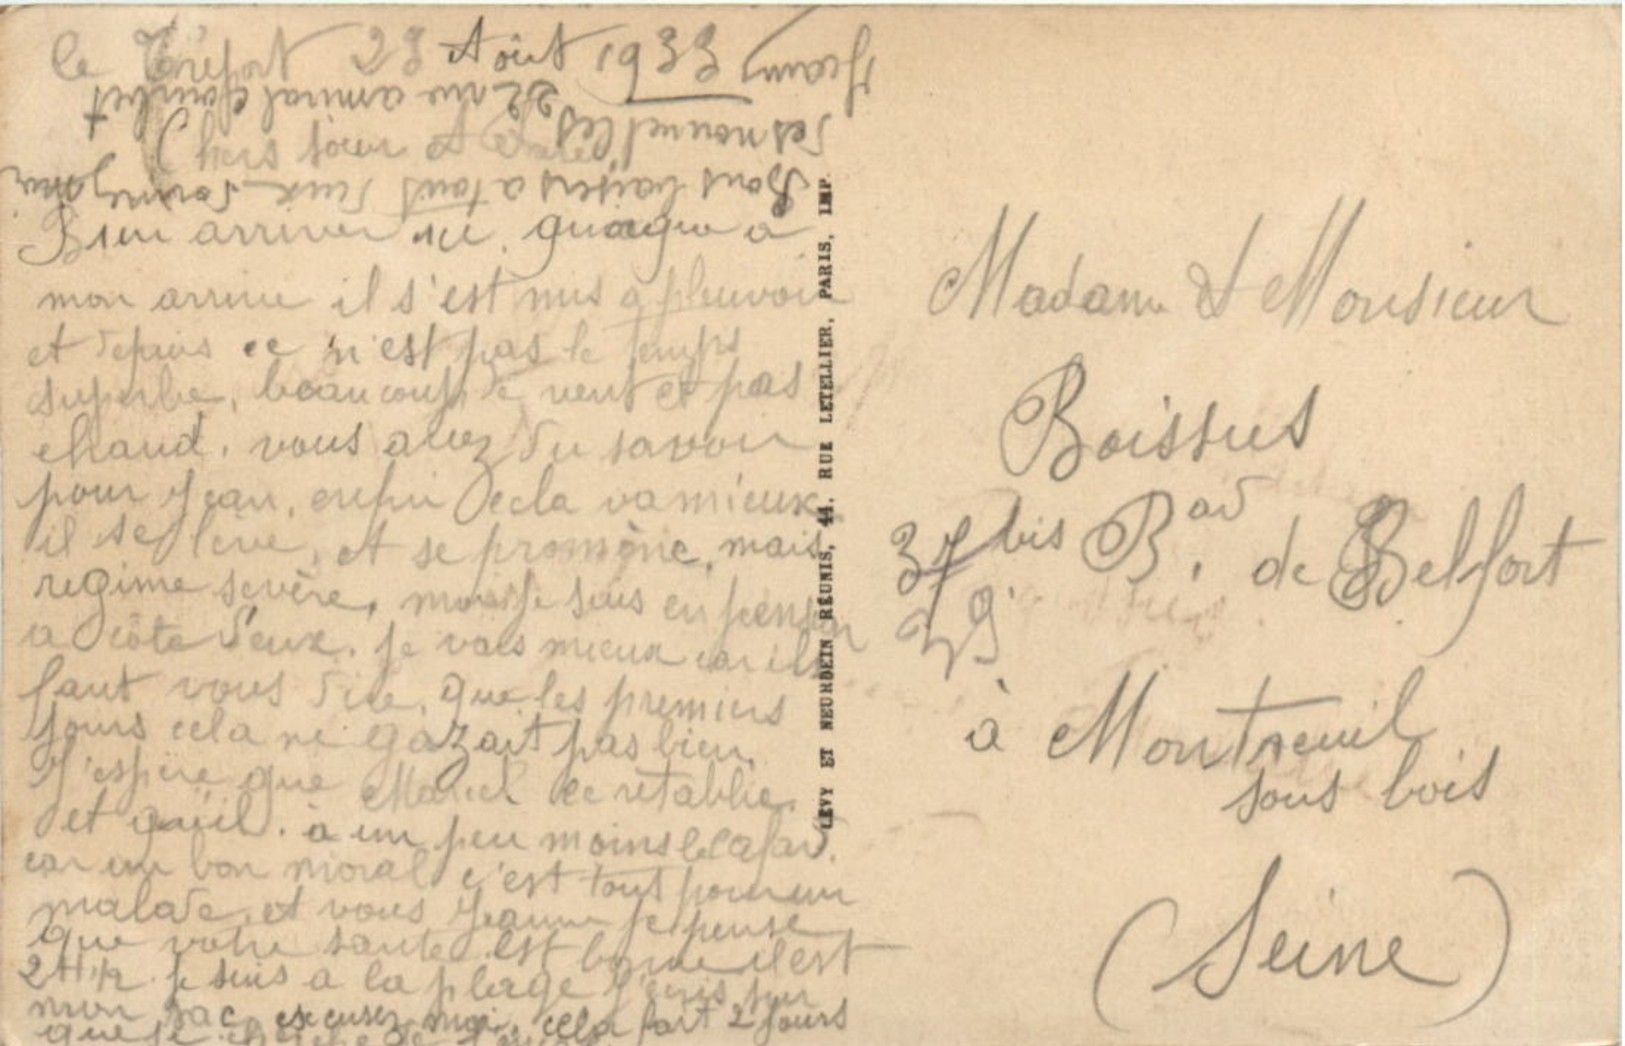 le Tréport 23 Août 1933
Chers sœur et
Bien arriver ici. quoique a
mon arrivée il s'est mis a pleuvoir
et depuis ce n'est pas le temps
superbe, beaucoup de vent et pas
chaud. vous avez du savoir
pour Jean, enfin cela va mieux
il se lève, et se promène, mais
regime sevère, moi je suis en pension
a côté d'eux. je vais mieux car il
faut vous dire, que les premiers
jours cela ne gazait pas bien.
J'espère que Marcel se rétablie,
et qu'il. à un peu moins le cafard.
car un bon moral c'est tout pour un
malade, et vous Jeanne je pense
que votre santé est bonne il est
2H1/2 je suis à la plage j'écris sur
mon sac, excusez moi, cela fait 2 jours
que je
Bons baisers a tous deux donnez moi
des nouvelles 22 rue amiral Courbet
Jeanne
LÉVY ET NEURDEIN RÉUNIS, 44, RUE LETELLIER, PARIS, IMP.
Madame & Monsieur
Boissus
37 bis B.ard de Belfort
29
à Montreuil
sous bois
(Seine)